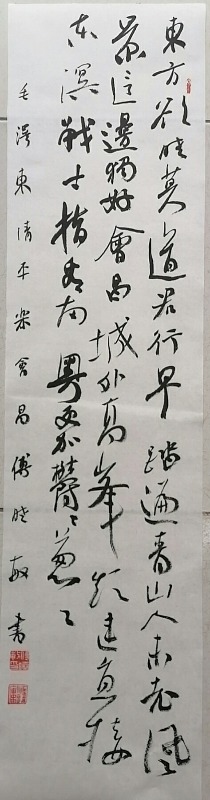 東方欲曉莫道君行早踏遍青山人未老風
景這邊獨好會昌城外高峰顛連直接
東溟戰士指看南粵更加鬱〻蔥〻
毛澤東清平樂會昌傅曉敏書